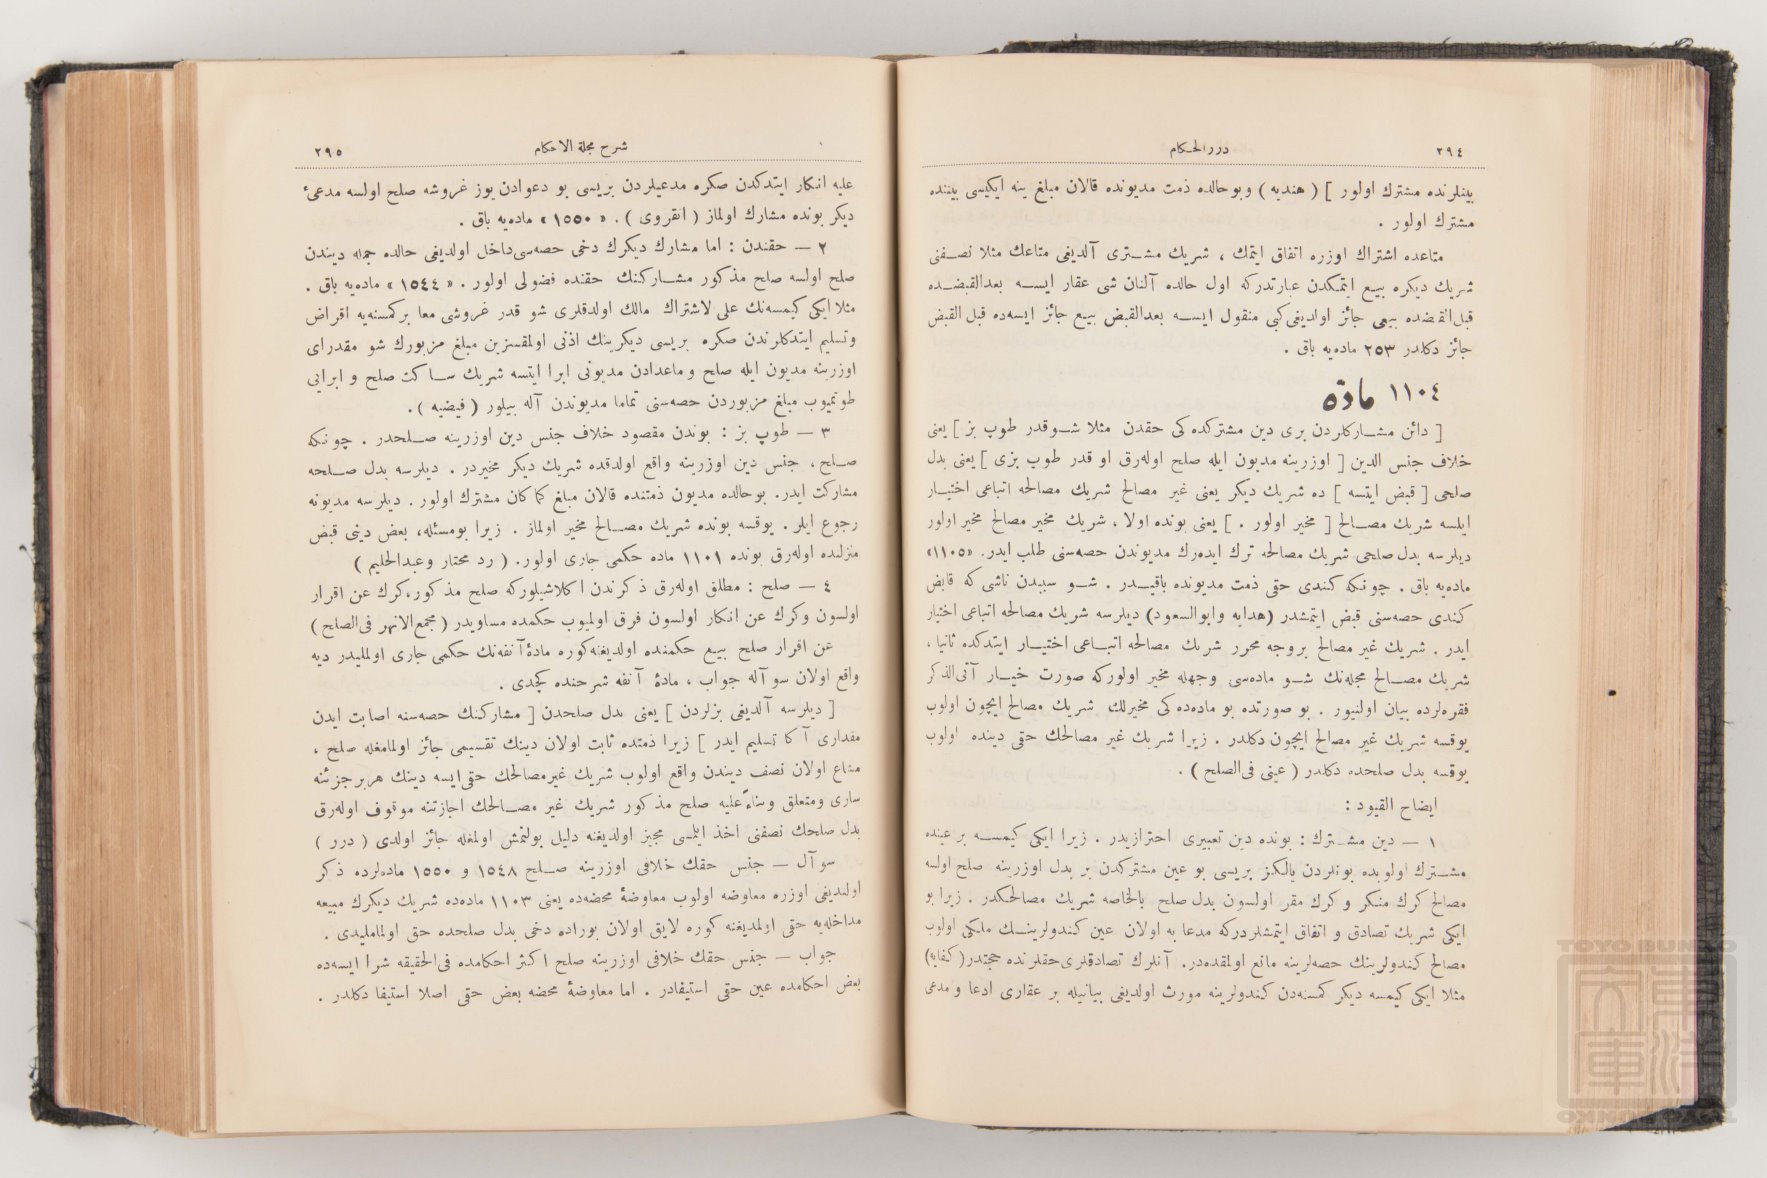 ٢٩٤
درر الحكام
بينلرنده مشترك اولور ] ( هنديه ) وبو حالده ذمت مديونده قالان مبلغ ينه ايكيسى بيننده
مشترك اولور .
متاعده اشتراك اوزره اتفاق ايتمك ، شريك مشترى آلديغى متاعك مثلا نصفنى
شريك ديكره بيع ايتمكدن عبارتدر كه اول حالده آلنان شى عقار ايسه بعدالقبضده
قبل القبضده بيعى جائز اولديغى كبى منقول ايسه بعدالقبض بيع جائز ايسه ده قبل القبض
جائز دكلدر ٢٥٣ ماده يه باق .
١١٠٤ مادّه
[ دائن مشاركلردن برى دين مشتركده كى حقدن مثلا شو قدر طوپ بز ] يعنى
خلاف جنس الدين [ اوزرينه مديون ايله صلح اوله رق او قدر طوپ بزى ] يعنى بدل
صلحى [ قبض ايتسه ] ده شريك ديكر يعنى غير مصالح شريك مصالحه اتباعى اختيار
ايلسه شريك مصالح [ مخير اولور . ] يعنى بونده اولا ، شريك مخير مصالح مخير اولور
ديلرسه بدل صلحى شريك مصالحه ترك ايده رك مديوندن حصه سنى طلب ايدر. «١١٠٥»
ماده يه باق . چونكه كندى حقى ذمت مديونده باقيدر . شو سببدن ناشى كه قابض
كندى حصه سنى قبض ايتمشدر (هدايه وابوالسعود) ديلرسه شريك مصالحه اتباعى اختيار
ايدر . شريك غير مصالح بروجه محرر شريك مصالحه اتباعى اختيار ايتدكده ثانيا ،
شريك مصالح مجله نك شو ماده سى وجهله مخير اولوركه صورت خيار آتى الذكر
فقره لرده بيان اولنيور . بو صورتده بو ماده ده كى مخيرلك شريك مصالح ايچون اولوب
يوقسه شريك غير مصالح ايچون دكلدر . زيرا شريك غير مصالحك حقى دينده اولوب
يوقسه بدل صلحده دكلدر ( عينى فى الصلح ) .
ايضاح القيود :
١ — دين مشترك : بونده دين تعبيرى احترازيدر . زيرا ايكى كيمسه بر عينده
مشترك اولوبده بونلردن يالكز بريسى بو عين مشتركدن بر بدل اوزرينه صلح اولسه
مصالح كرك منكر و كرك مقر اولسون بدل صلح بالخاصه شريك مصالحكدر . زيرا بو
ايكى شريك تصادق و اتفاق ايتمشلردركه مدعا به اولان عين كندولرينك ملكى اولوب
مصالح كندولرينك حصه لرينه مانع اولمقده در. آنلرك تصادقلرى حقلرنده حجتدر (كفايه)
مثلا ايكى كيمسه ديكر كمسه دن كندولرينه مورث اولديغى بيانيله بر عقارى ادعا و مدعى
شرح مجلة الاحكام
٢٩٥
عليه انكار ايتدكدن صكره مدعيلردن بريسى بو دعوادن يوز غروشه صلح اولسه مدعئ
ديكر بونده مشارك اولماز ( انقروى ) . « ١٥٥٠ » ماده يه باق .
٢ — حقندن : اما مشارك ديكرك دخى حصه سى داخل اولديغى حالده جمله ديندن
صلح اولسه صلح مذكور مشاركنك حقنده فضولى اولور . « ١٥٤٤ » ماده يه باق .
مثلا ايكى كيمسه نك على لاشتراك مالك اولدقلرى شو قدر غروشى معا بر كمسنه يه اقراض
وتسليم ايتدكلرندن صكره بريسى ديكرينك اذنى اولمقسزين مبلغ مزبورك شو مقدراى
اوزرينه مديون ايله صلح و ماعدادن مديونى ابرا ايتسه شريك ساكت صلح و ابرايى
طوتميوب مبلغ مزبوردن حصه سنى تماما مديوندن آله بيلور ( فيضيه ) .
٣ — طوپ بز : بوندن مقصود خلاف جنس دين اوزرينه صلحدر . چونكه
صلح ، جنس دين اوزرينه واقع اولدقده شريك ديكر مخيردر . ديلرسه بدل صلحه
مشاركت ايدر. بو حالده مديون ذمتنده قالان مبلغ كما كان مشترك اولور . ديلرسه مديونه
رجوع ايلر . يوقسه بونده شريك مصالح مخير اولماز . زيرا بومسئله، بعض دينى قبض
منزلنده اوله رق بونده ١١٠١ ماده حكمى جارى اولور. ( رد محتار وعبدالحليم )
٤ — صلح : مطلق اوله رق ذكرندن اكلاشيلوركه صلح مذكور، كرك عن اقرار
اولسون وكرك عن انكار اولسون فرق اولميوب حكمده مساويدر ( مجمع الانهر فى الصلح )
عن اقرار صلح بيع حكمنده اولديغنه كوره مادۀ آنفه نك حكمى جارى اولمليدر ديه
واقع اولان سو آله جواب ، مادۀ آنفه شرحنده كچدى .
[ ديلرسه آلديغى بزلردن ] يعنى بدل صلحدن [ مشاركنك حصه سنه اصابت ايدن
مقدارى آكا تسليم ايدر ] زيرا ذمتده ثابت اولان دينك تقسيمى جائز اولمامغله صلح ،
مشاع اولان نصف ديندن واقع اولوب شريك غير مصالحك حقى ايسه دينك هر بر جزئنه
سارى ومتعلق وبناءً عليه صلح مذكور شريك غير مصالحك اجازتنه موقوف اوله رق
بدل صلحك نصفنى اخذ ايلمسى مجيز اولديغنه دليل بولنمش اولمغله جائز اولدى ( درر )
سو آل — جنس حقك خلافى اوزرينه صلح ١٥٤٨ و ١٥٥٠ ماده لرده ذكر
اولنديغى اوزره معاوضه اولوب معاوضۀ محضه ده يعنى ١١٠٣ ماده ده شريك ديكرك مبيعه
مداخله يه حقى اولمديغنه كوره لايق اولان بوراده دخى بدل صلحده حق اولمامليدى .
جواب — جنس حقك خلافى اوزرينه صلح اكثر احكامده فى الحقيقه شرا ايسه ده
بعض احكامده عين حقى استيفادر . اما معاوضۀ محضه بعض حقى اصلا استيفا دكلدر .
TOYO BUNKO